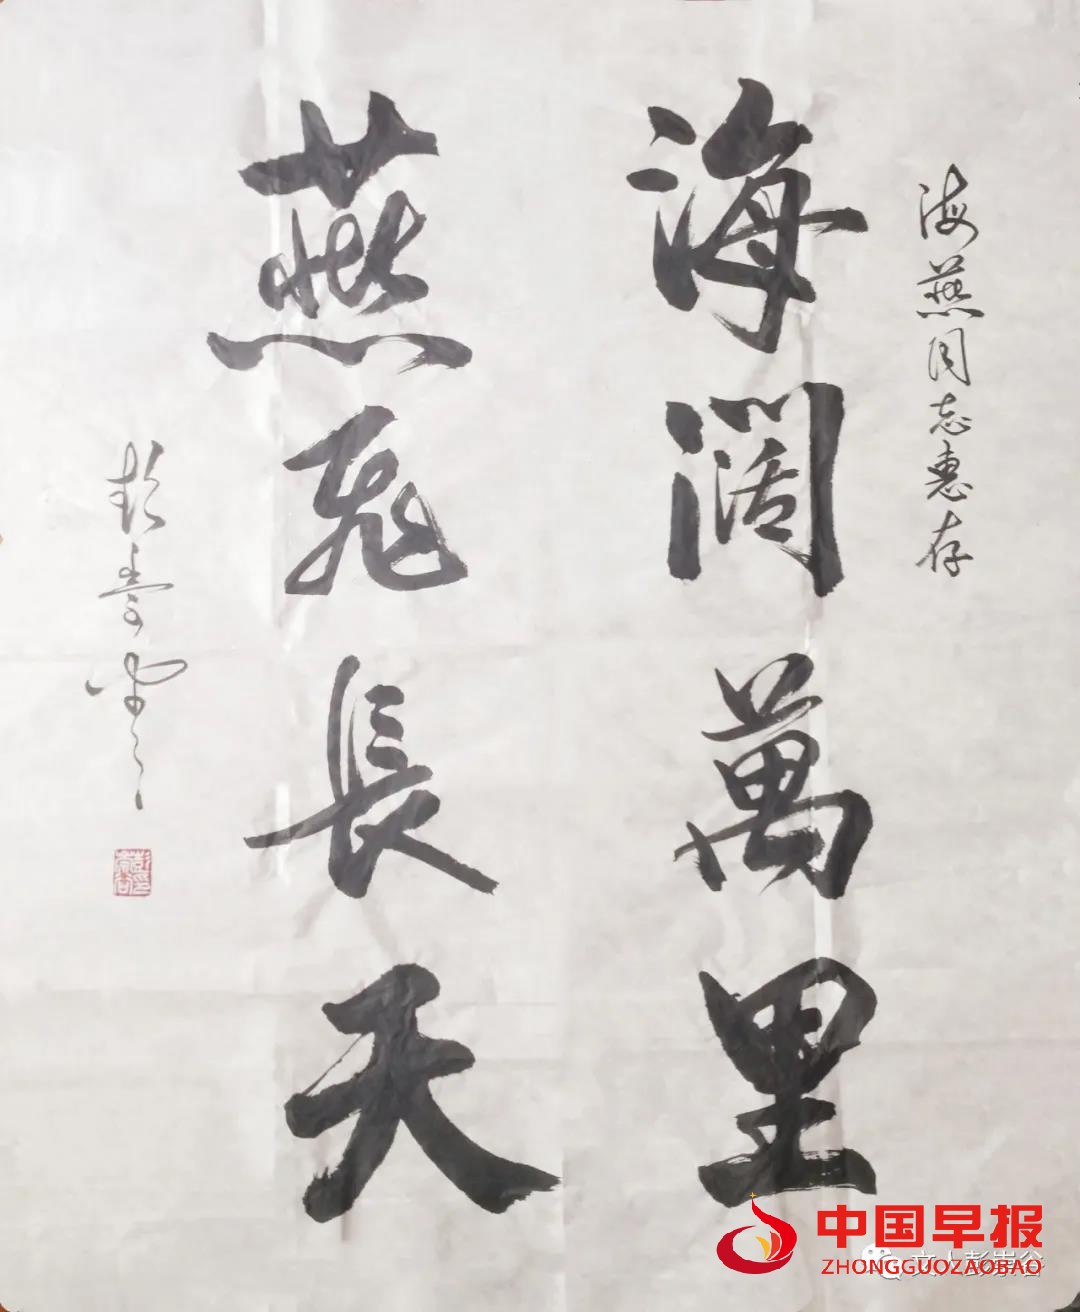 海燕同志惠存
海闊萬里
燕飛長天
彭崇谷
彭崇谷印
中国早报
ZHONGGUOZAOBAO
文人彭崇谷